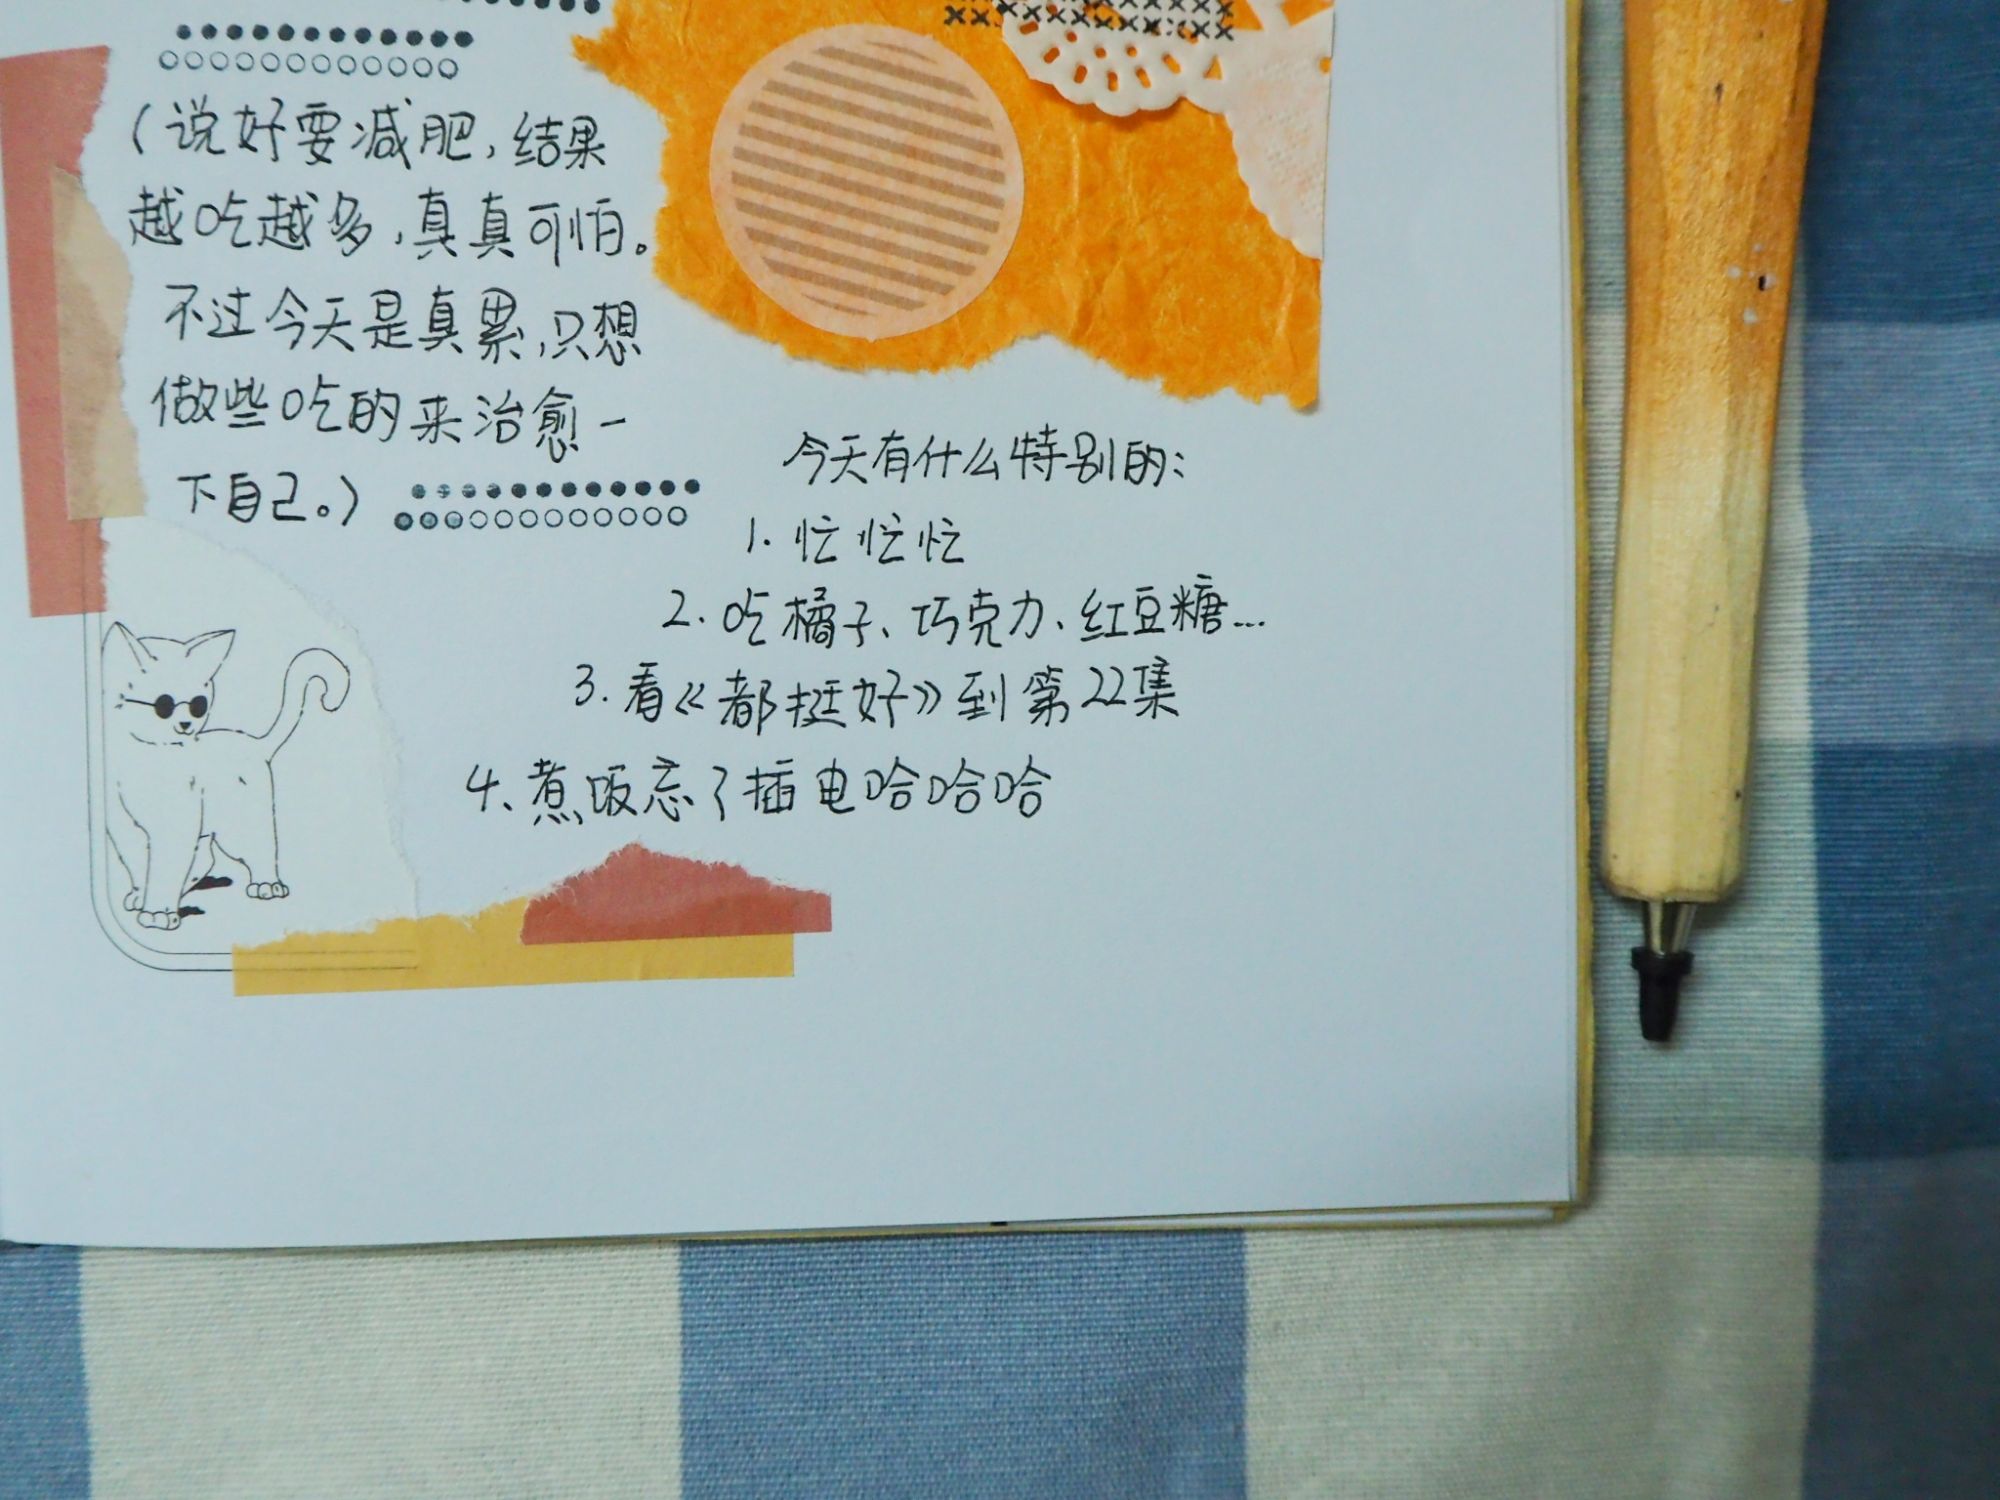 （说好要减肥，结果
越吃越多，真真可怕。
不过今天是真累，只想
做些吃的来治愈一
下自己。）
今天有什么特别的：
1. 忙忙忙
2. 吃橘子、巧克力、红豆糖...
3. 看《都挺好》到第22集
4、煮饭忘了插电哈哈哈